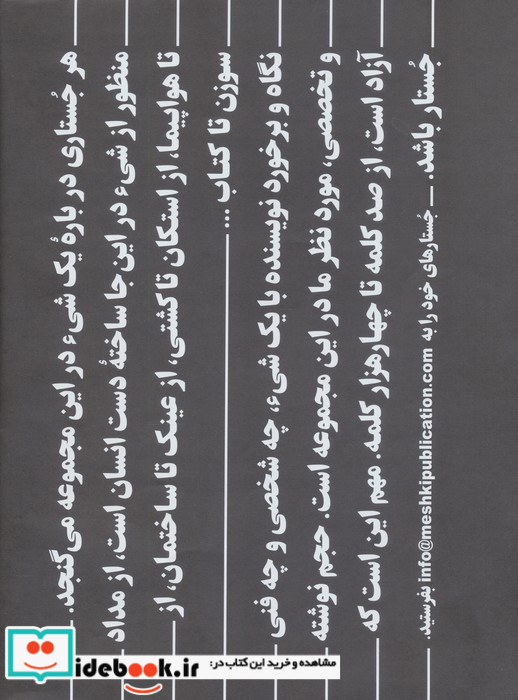 هر جُستاری در بارهٔ یک شیء در این مجموعه می‌گنجد.
منظور از شیء در این‌جا ساختهٔ دست انسان است، از مداد
تا هواپیما، از استکان تا کشتی، از عینک تا ساختمان، از
سوزن تا کتاب ...
نگاه و برخورد نویسنده با یک شیء، چه شخصی و چه فنی
و تخصصی، مورد نظر ما در این مجموعه است. حجم نوشته
آزاد است، از صد کلمه تا چهارهزار کلمه. مهم این است که
جُستار باشد. — جُستارهای خود را به info@meshkipublication.com بفرستید.
idebook.ir
مشاهده و خرید این کتاب در: